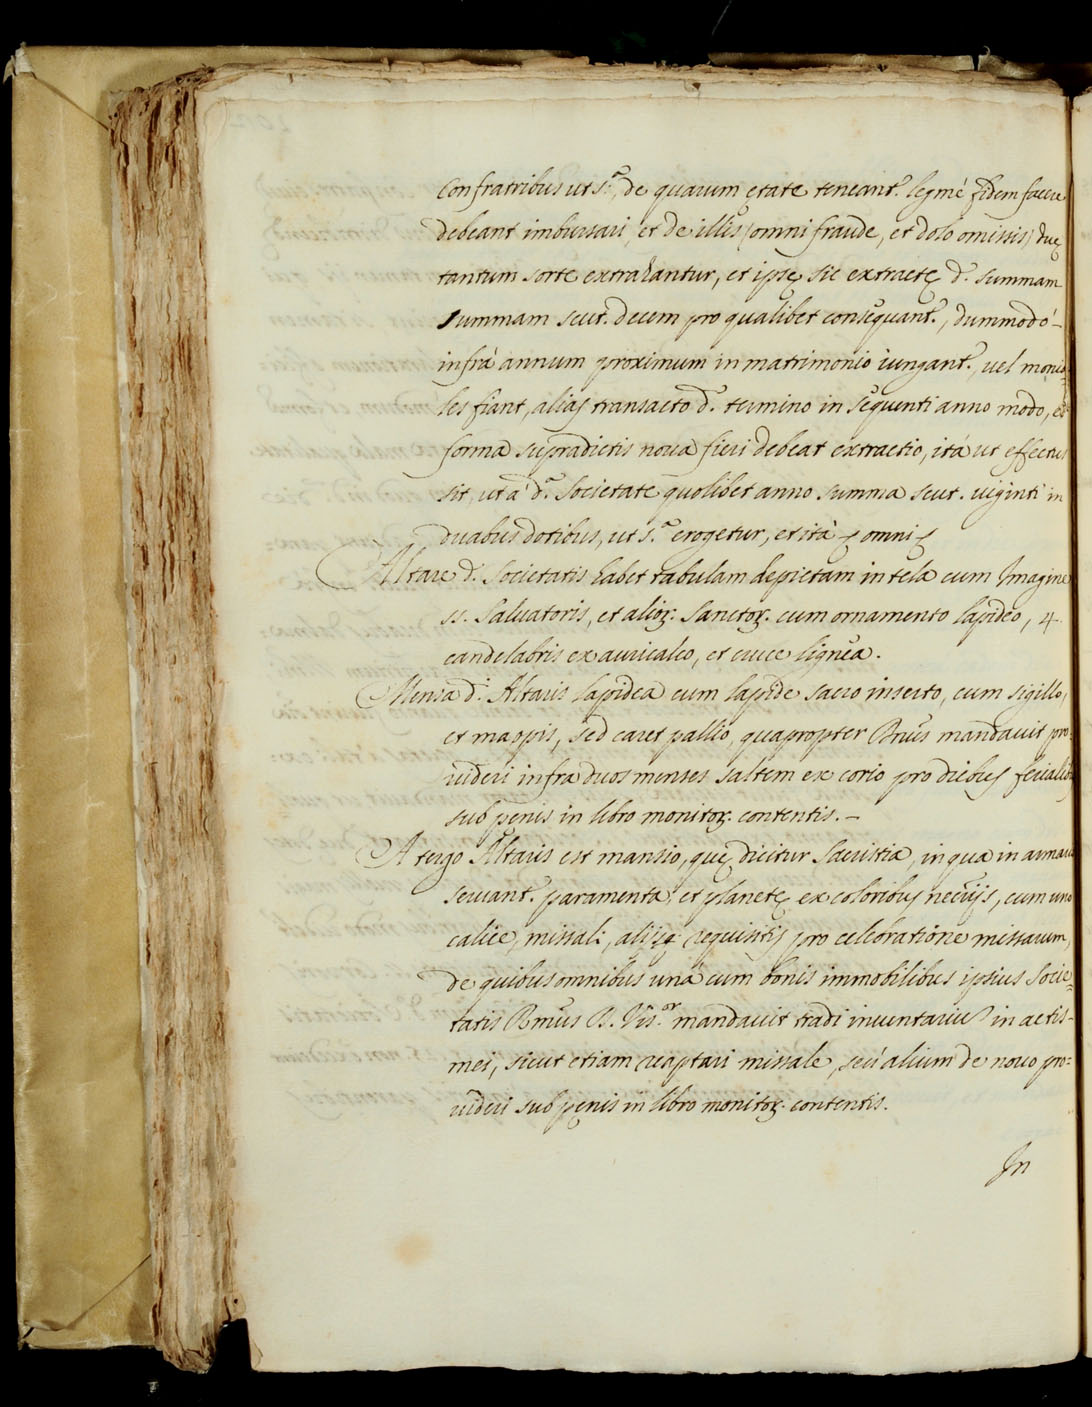 Confratribus ut s.ª, de quarum ętate teneant.r legmé fidem facere
debeant imbursari, et de illis (omni fraude, et dolo omissis) duę
tantum sorte extrahantur, et ipsę sic extractę d. summam
summam scut. decem pro qualibet consequant.r, dummodó-
infrà annum proximum in matrimonio iungant.r, vel monia-
les fiant, alias transacto d.º termino in sequenti anno modo, et
forma supradictis noua fieri debeat extractio, itá ut effectus
sit, ut á d.ª Societate quolibet anno summa scut. uiginti in
duabus dotibus, ut s.ª erogetur, et ità ę omni ę
Altare d.ę Societatis habet tabulam depictam in tela cum Imagine
ss. Saluatoris, et alioꝝ. Sanctoꝝ. cum ornamento lapideo, 4.
candelabris ex auricalco, et cruce lignea.
Mensa d.i Altaris lapidea cum lapide sacro inserto, cum sigillo,
et mappis, sed caret pallio, quapropter Rm̃us mandauit pro-
uideri infra duos menses saltem ex corio pro diebus ferialibus
sub pęnis in libro monitoꝝ. contentis.-
A tergo Altaris est mansio, quę dicitur Sacristia, in qua in armario
seruant.r paramenta, et planetę ex coloribus necrijs, cum uno
calice, missali, alijsq. requisitis pro celebratione missarum,
de quibus omnibus unà cum bonis immobilibus ipsius Socie=
tatis Rm̃us D. Vis.or mandauit tradi inuentariũ in actis-
mei, sicut etiam reaptari missale, seú alium de nouo pro=
uideri sub pęnis in libro monitoꝝ. contentis.
In